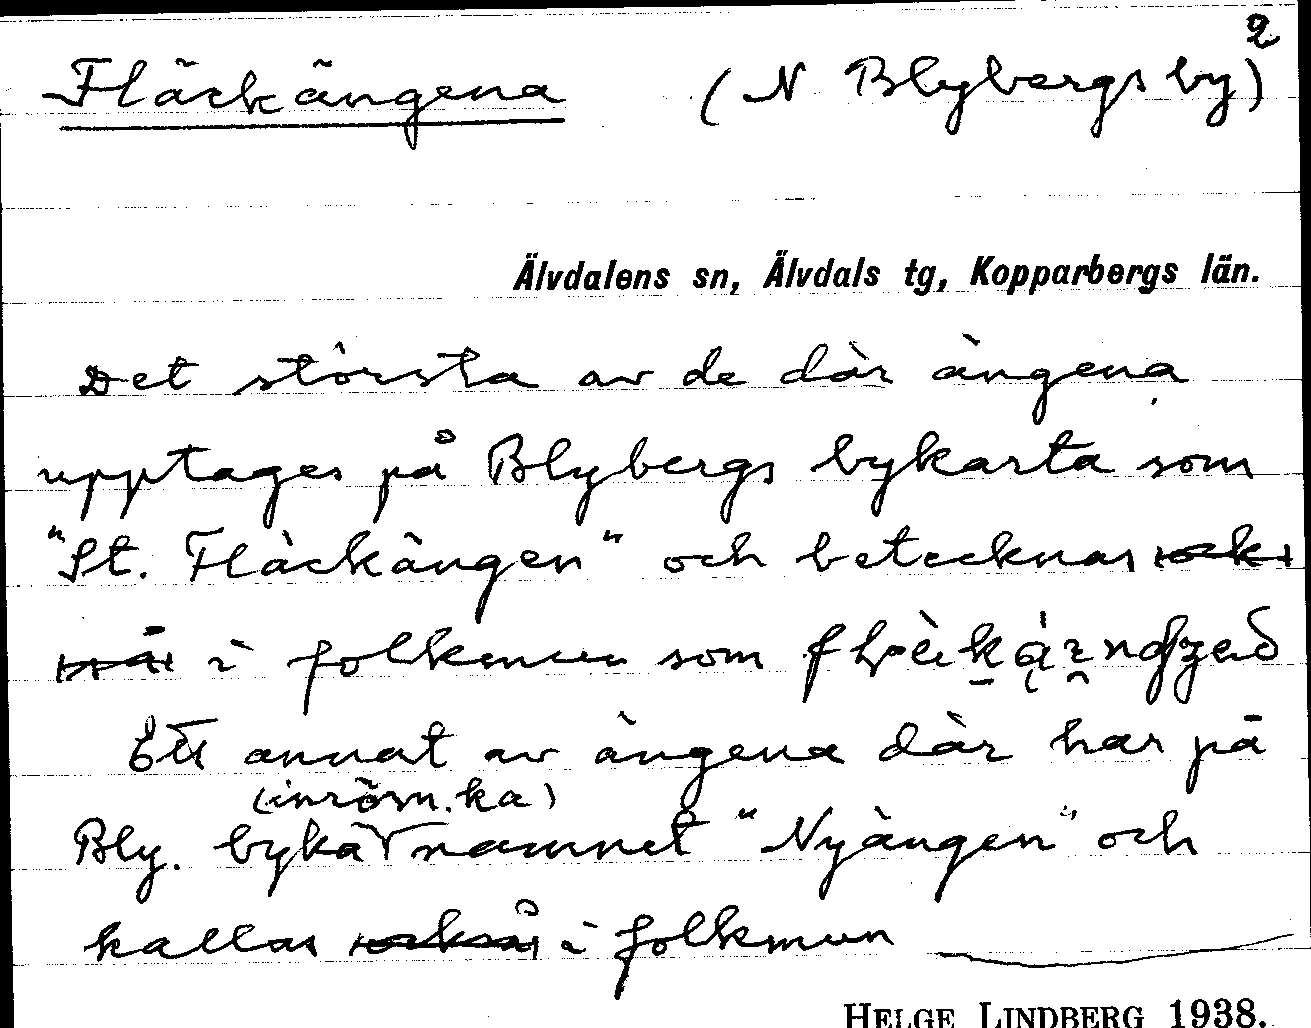 2
Fläckängena (N Blybergs by)
Älvdalens sn, Älvdals tg, Kopparbergs län.
Det största av de där ängena
upptages på Blybergs bykarta som
"St. Fläckängen" och betecknas
i folkmun som
Ett annat av ängena där har på
(inröm.ka)
Bly. byka namnet "Nyängen" och
kallas också i folkmun
HELGE LINDBERG 1938.